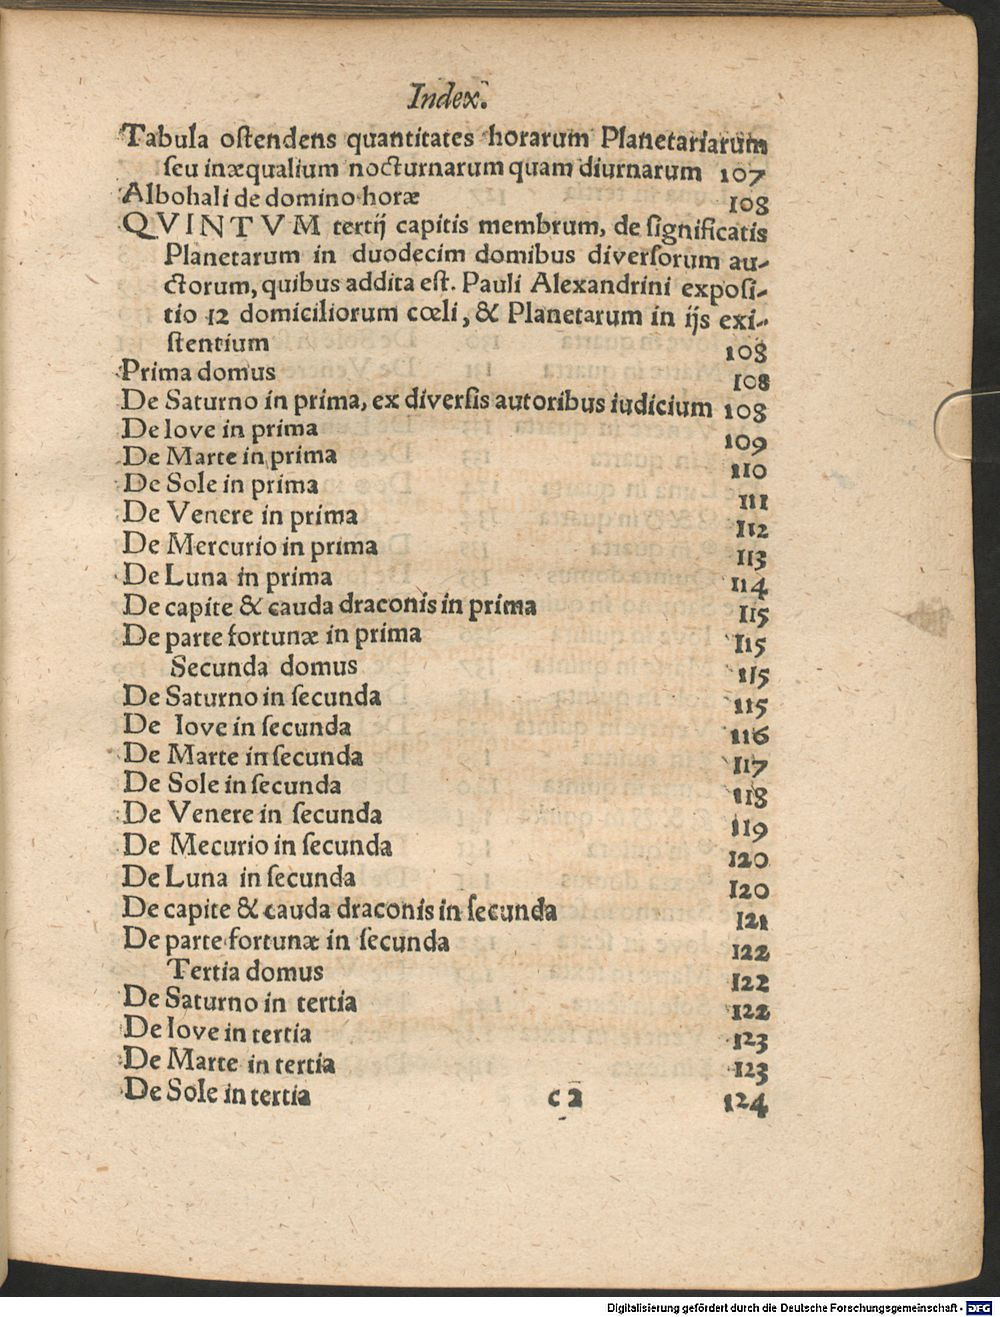 Index.
Tabula ostendens quantitates horarum Planetariarum
seu inæqualium nocturnarum quam diurnarum 107
Albohali de domino horæ 108
QVINTVM tertij capitis membrum, de significatis
Planetarum in duodecim domibus diversorum au-
ctorum, quibus addita est. Pauli Alexandrini exposi-
tio 12 domiciliorum cœli, & Planetarum in ijs exi-
stentium 108
Prima domus 108
De Saturno in prima, ex diversis autoribus iudicium 108
De Iove in prima 109
De Marte in prima 110
De Sole in prima 111
De Venere in prima 112
De Mercurio in prima 113
De Luna in prima 114
De capite & cauda draconis in prima 115
De parte fortunæ in prima 115
Secunda domus 115
De Saturno in secunda 115
De Iove in secunda 116
De Marte in secunda 117
De Sole in secunda 118
De Venere in secunda 119
De Mecurio in secunda 120
De Luna in secunda 120
De capite & cauda draconis in secunda 121
De parte fortunæ in secunda 122
Tertia domus 122
De Saturno in tertia 122
De Iove in tertia 123
De Marte in tertia 123
De Sole in tertia 124
c 2
Digitalisierung gefördert durch die Deutsche Forschungsgemeinschaft - DFG